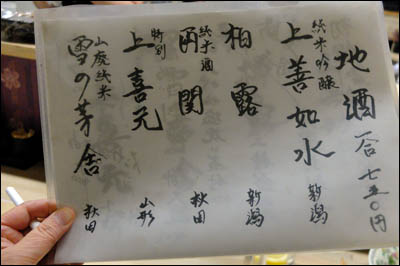 地酒 一合 七五〇円
純米吟醸 上善如水 新潟
相露 新潟
純米酒 両関 秋田
特別 上喜元 山形
山廃純米 雪の茅舎 秋田